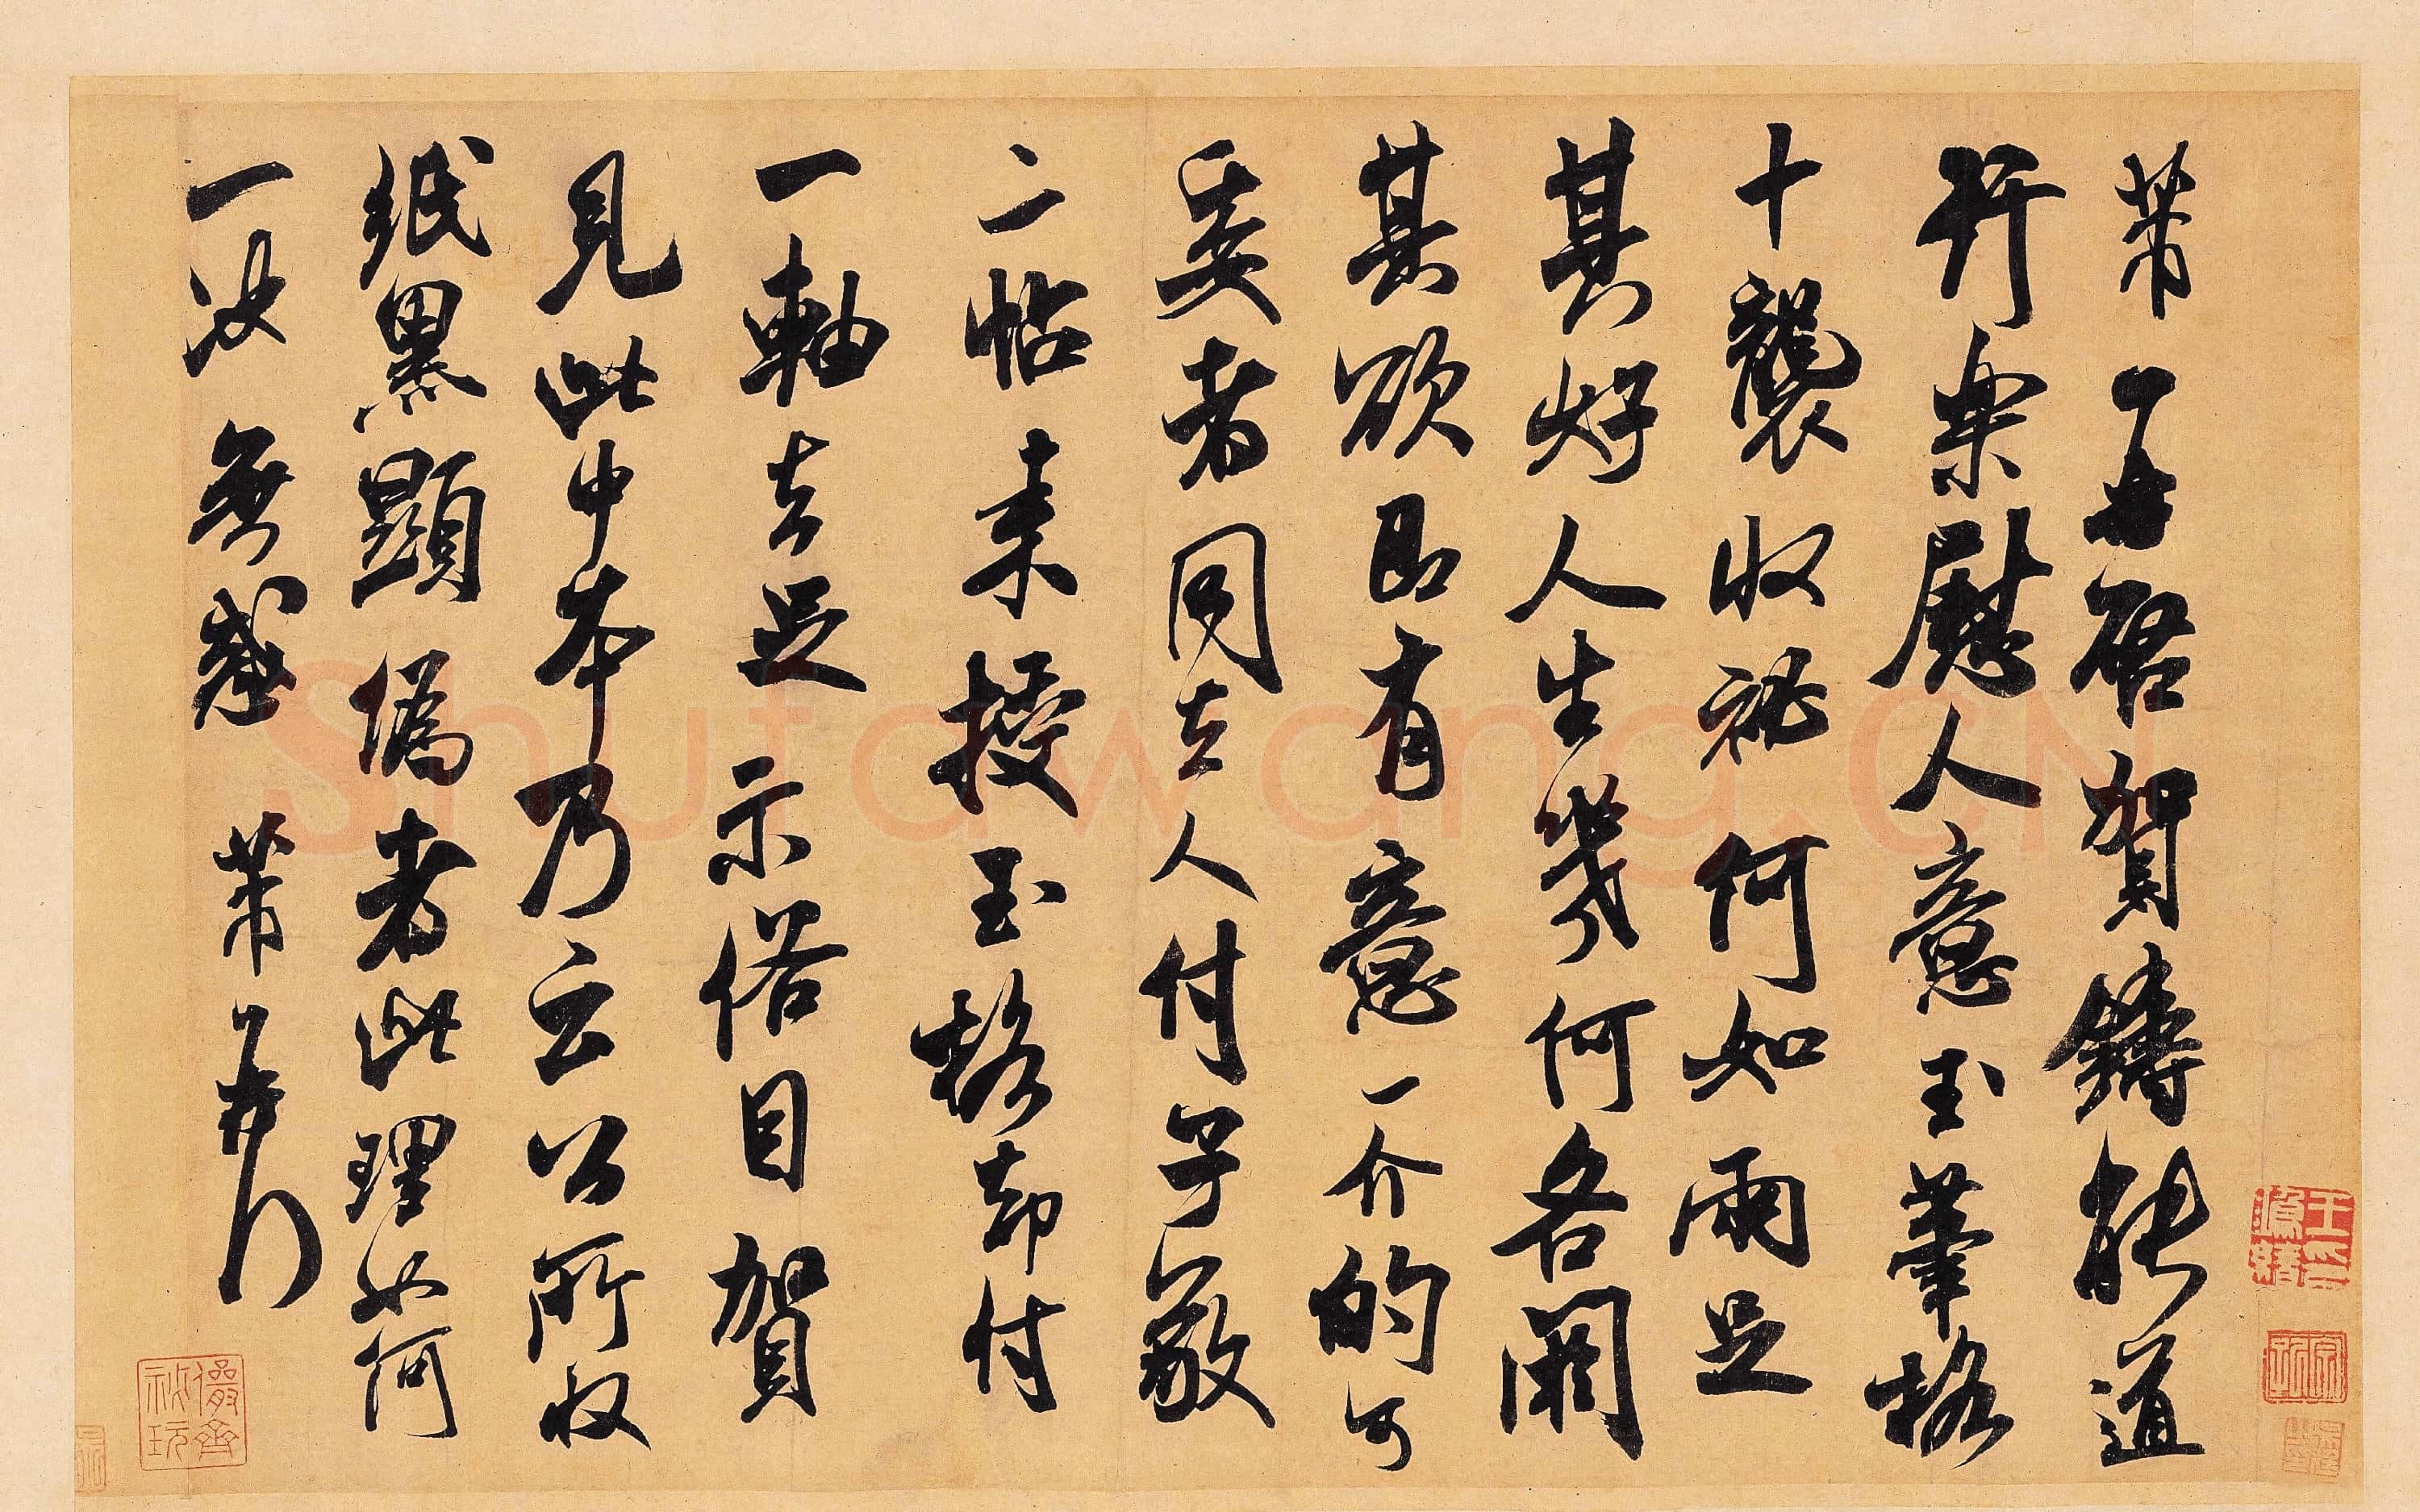 芾頓首再啓賀鑄能道
行樂慰人意玉筆格
十襲收秘何如兩足
其好人生幾何各闕
其欲即有意一介的可
委者同去人付子敬
二帖來授玉格却付
一軸去足示俗目賀
見此中本乃云公所收
紙黑顯偽者此理如何
一決無惑芾頓首
shufawang.CN